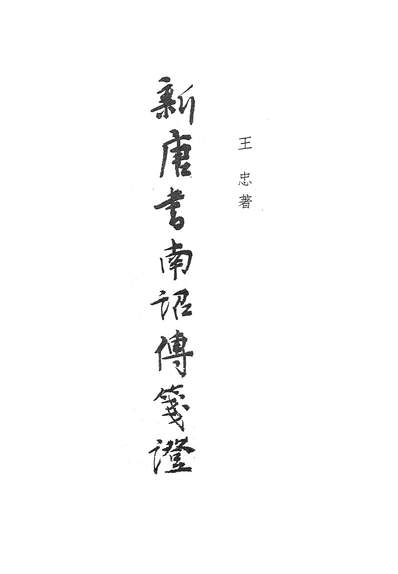 王忠著
新唐書南詔傳箋證